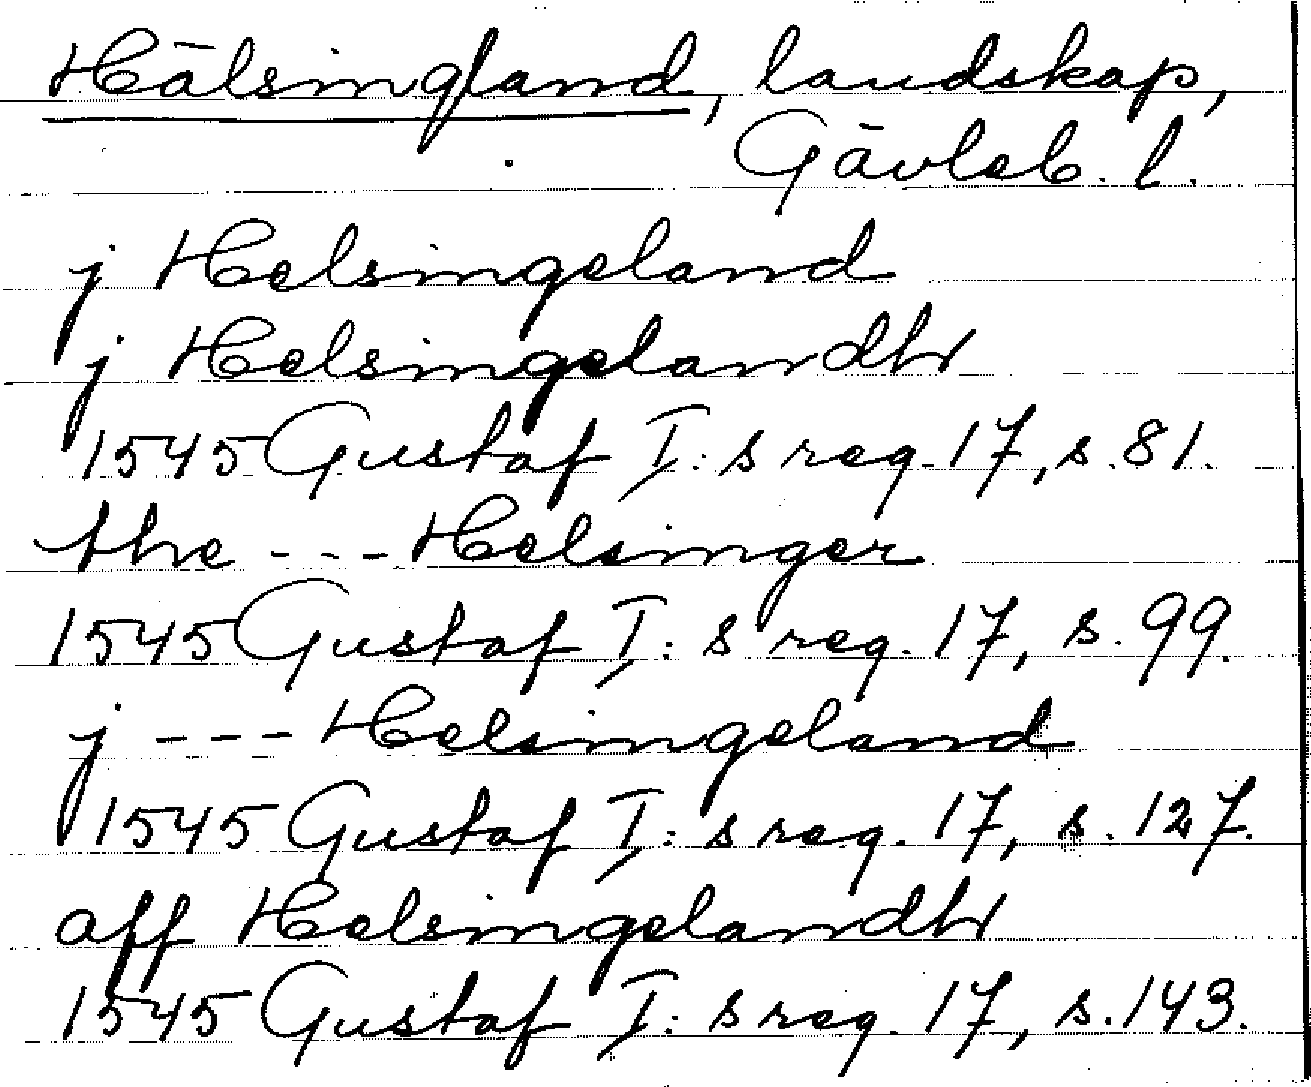 Hälsingland, landskap,
Gävleb. l.
j Helsingeland
j Helsingelandh
1545 Gustaf I:s reg. 17, s. 81.
the --- Helsinger
1545 Gustaf I:s reg. 17, s. 99.
j --- Helsingeland
1545 Gustaf I:s reg. 17, s. 127.
aff Helsingelandh
1545 Gustaf I:s reg. 17, s. 143.